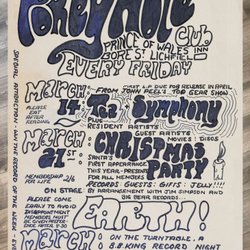 Pokey Hole
Club
PRINCE OF WALES INN
GORE ST. LICHFIELD
EVERY FRIDAY
FIRST L.P. DUE FOR RELEASE IN APRIL
FROM JOHN PEEL'S TOP GEAR SHOW
MARCH 14TH
TEA Symphony
PLUS
RESIDENT ARTISTS
GUEST ARTISTS
MOVIES: DISCS
PLEASE
EAT
AFTER
READING
MARCH 21ST
CHRISTMAS PARTY
SANTA'S
FIRST APPEARANCE
THIS YEAR - PRESENTS
FOR ALL MEMBERS
RECORDS: GUESTS: GIFTS: JELLY!!!!
MEMBERSHIP 2/6
FOR LIFE
ON STAGE
BY ARRANGEMENT WITH JIM SIMPSON AND
BIG BEAR RECORDS...
EARTH!
PLEASE COME
EARLY TO AVOID
DISAPPOINTMENT
MEMBERS WILL
BE GIVEN PREFER-
ENCE AFTER 9.30
MARCH
ON THE TURNTABLE. A
B.B. KING RECORD NIGHT
SPECIAL ATTRACTION